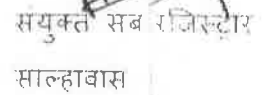 संयुक्त सब रजिस्टार
साल्हावास